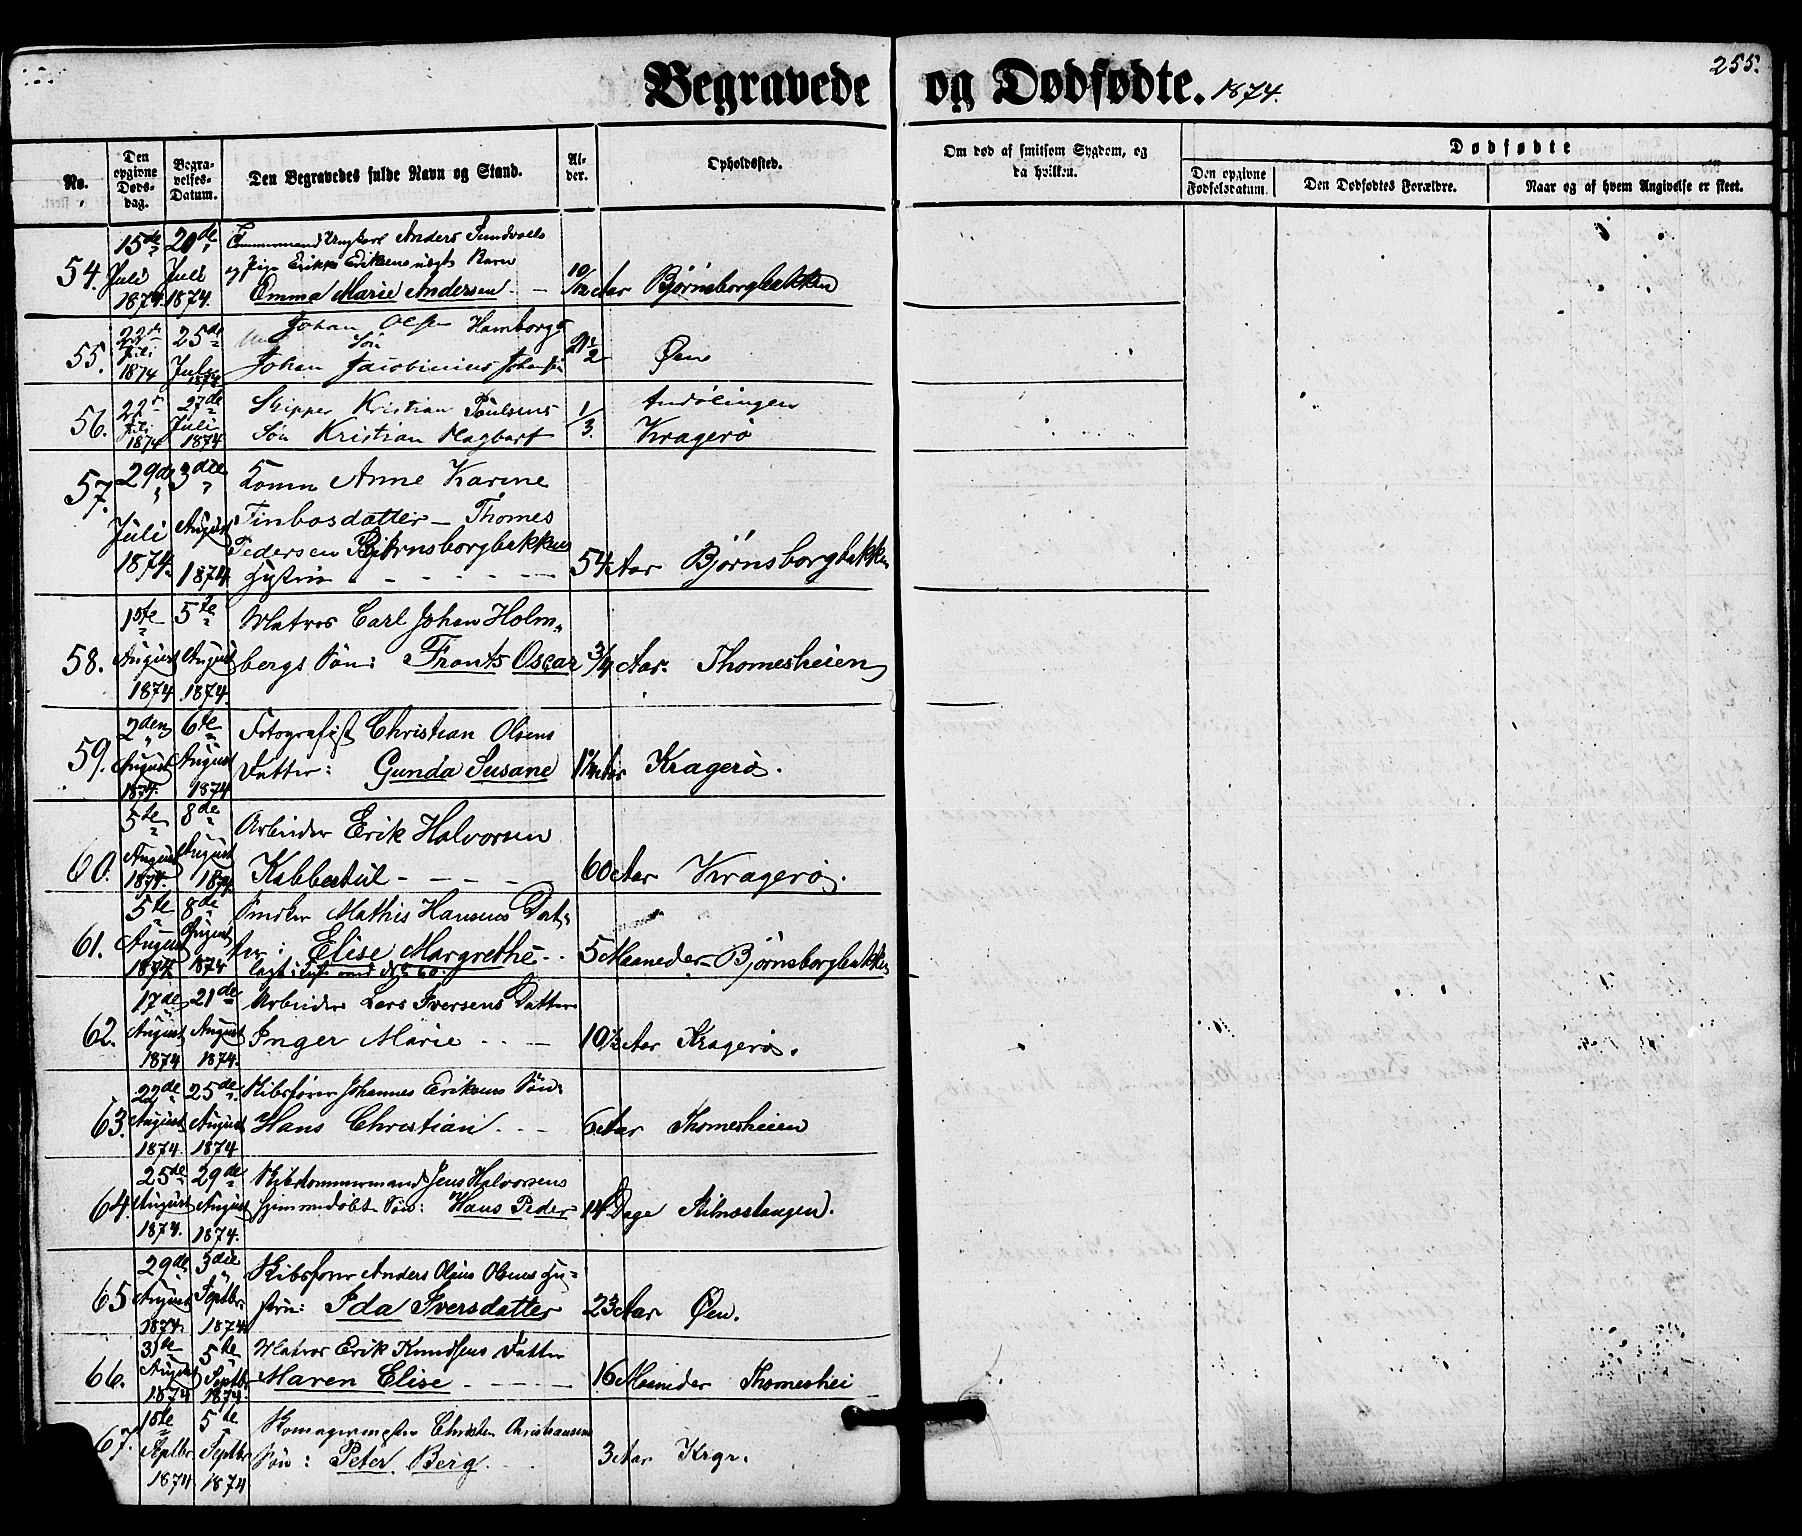 255.
Begravede og Dødfødte. 1874.
No.
Den opgivne Døds-dag.
Begra-velses-Datum.
Den Begravedes fulde Navn og Stand.
Al-der.
Opholdssted.
Om død af smitsom Sygdom, og da hvilken.
Dødfødte
Den opgivne Fødselsdatum.
Den Dødfødtes Forældre.
Naar og af hvem Angivelse er skeet.
54. 15de Juli 1874. 20de Juli 1874.
Anders Sundvols
og Pige Eriksens uægt. Barn
Emma Marie Andersen - 10/12 Aar Bjørnsborgbakken
55. 22de Juli 1874 25de Juli 1874
Johan Olsen Hamborgs
Søn
Johan Jacobinius Johansen 2 1/2 Øen
56. 22de Juli 1874 27de Juli 1874
Skipper Kristian Poulsens
Søn Kristian Hagbart 1/3. Kragerø
57. 29de Juli 1874. 3die August 1874
Konen Anne Karine
Finbosdatter - Thomes
Pedersen Bjørnsborgbakkens
Hustru - 54 Aar Bjørnsborgbakken
58. 1ste August 1874 5te August 1874.
Matros Carl Johan Holm-
bergs Søn: Frants Oscar 3/4 Aar. Thomesheien
59. 2den August 1874. 6te August 1874
Fotografist Christian Olsens
Datter: Gunda Susane Kragerø.
60. 5te August 1874. 8de August 1874.
Arbeider Erik Halvorsen
Kabbestul - - - - 60 Aar Kragerø.
61. 5te August 1874. 8de August 1874
Mathis Hansens Dat-
ter: Elise Margrethe - - 5 Maaneder - Bjørnsborgbakken
lagt i Kiste med No 60.
62. 17de August 1874 21de August 1874.
Arbeider Lars Iversens Datter
Inger Marie - - - 10 1/2 Aar Kragerø.
63. 22de August 1874. 25de August 1874
Skibsfører Johannes Eriksens Søn:
Hans Christian - - - 6 Aar Thomesheien
64. 25de August 1874. 29de August 1874.
Skibstømmermand Jens Halvorsens
hjemmedøbt Søn: Hans Peder 14 Dage Stilnestangen.
65 29de August 1874. 3die Septbr. 1874.
Skibsfører Anders Olsens Hu-
stru: Ida Iversdatter 23 Aar Øen.
66. 31te August 1874 5te Septbr 1874.
Matros Erik Knudsens Datter
Maren Elise - - - - 16 Maaneder Thomeshei
67. 1ste Septbr 1874 5te Septbr 1874
Skomagermester Christen Christiansens
Søn: Peter Berg - - - 3 Aar Krgr.